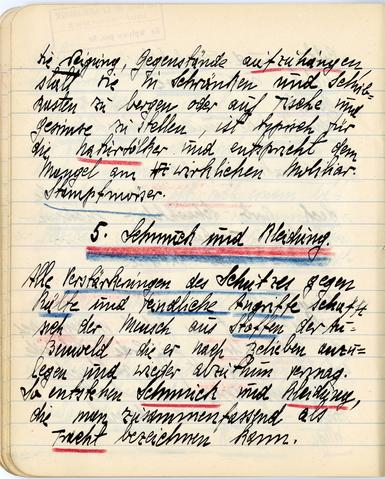 die Neigung, Gegenstände aufzuhängen
statt sie in Schränken und Schub-
kasten zu bergen oder auf Tische und
Gesimse zu stellen, ist typisch für
die Naturvölker und entspricht dem
Mangel an wirklichen Mobiliar.
Stampfmörser.
5. Schmuck und Kleidung.
Alle Verstärkungen des Schutzes gegen
Kälte und feindliche Angriffe schafft
sich der Mensch aus Stoffen der Au-
ßenwelt, die er nach Belieben anzu-
legen und wieder abzuthun vermag.
So entstehen Schmuck und Kleidung,
die man zusammenfassend als
Tracht bezeichnen kann.